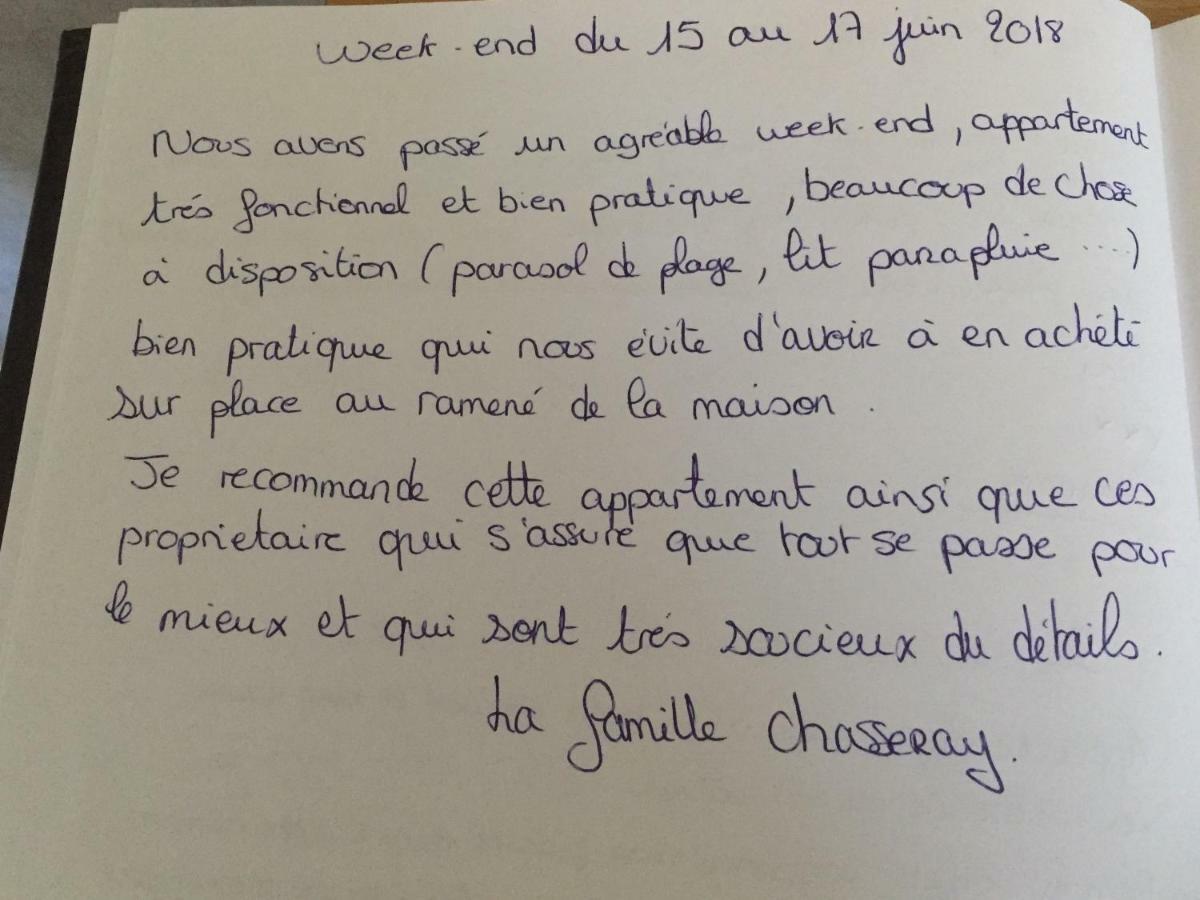 Week-end du 15 au 17 juin 2018
Nous avons passé un agréable week-end, appartement
trés fonctionnel et bien pratique, beaucoup de chose
à disposition (parasol de plage, lit parapluie ....)
bien pratique qui nous évite d'avoir à en achété
sur place au ramené de la maison.
Je recommande cette appartement ainsi que ces
proprietaire qui s'assure que tout se passe pour
le mieux et qui sont trés soucieux du détails.
La famille Chasseray.